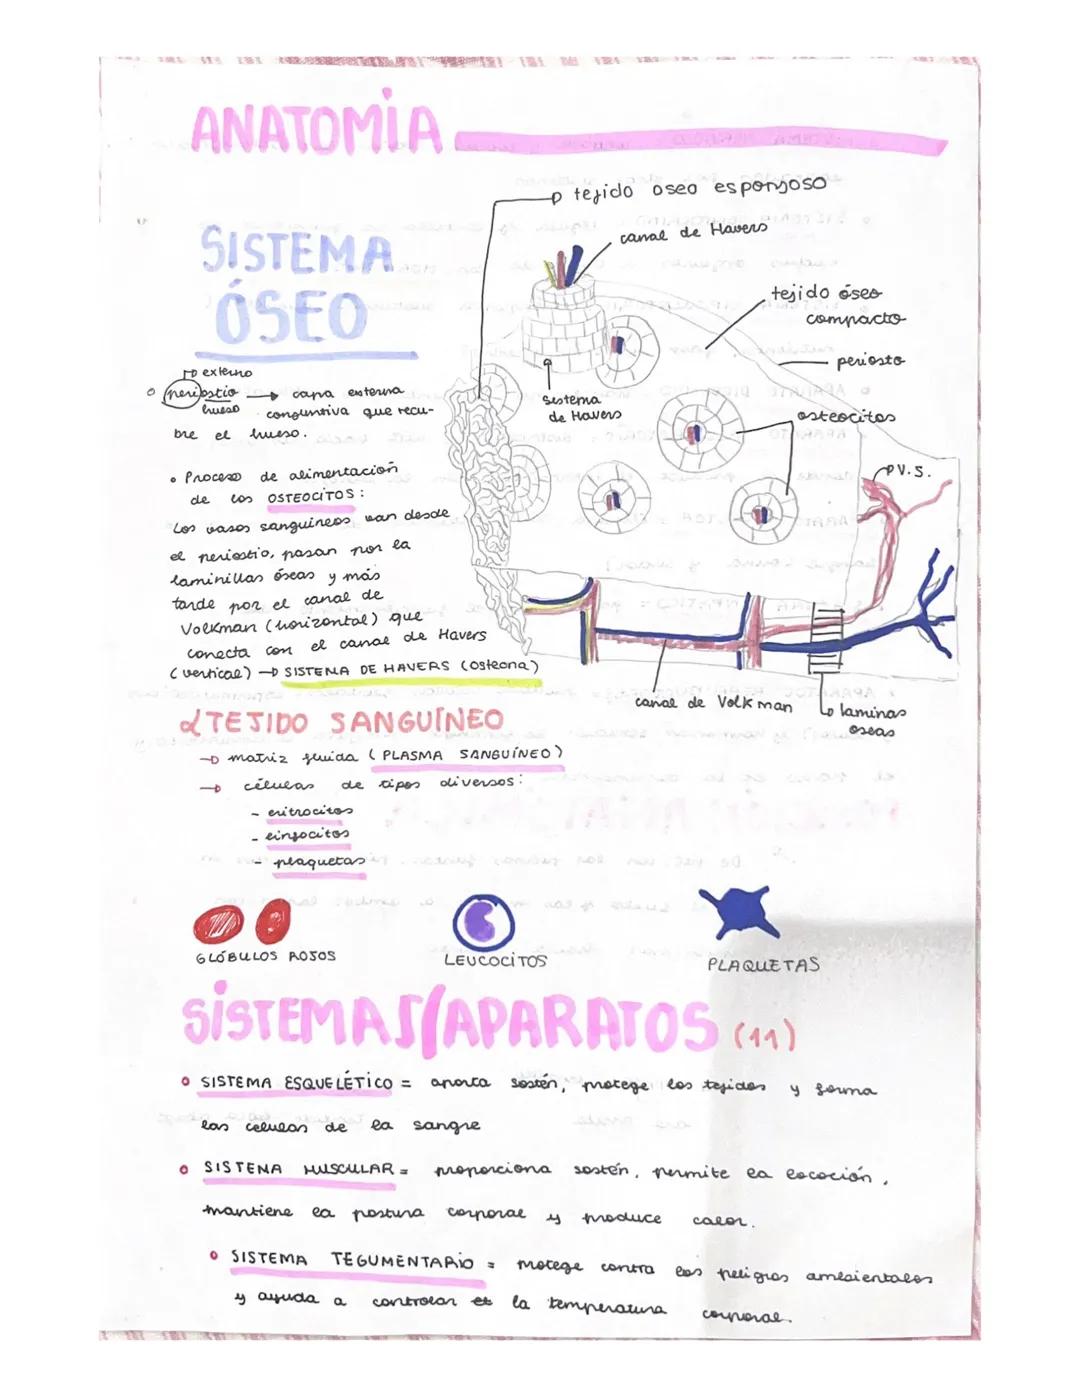 ANATOMÍA
tejido oseo esponjoso
canal de Havers
tejido óseo
compacto
periosto
sistema
de Havers
osteocitos
V.S.
canal de Volkman
laminas
oseas
SISTEMA
ÓSEO
externo
periostio → capa externa
hueso
conjuntiva que recu-
bre el hueso.
• Proceso de alimentación
de los OSTEOCITOS:
Los vasos sanguineos van desde
el periostio, pasan por la
laminillas óseas y más
tarde por el canal de
Volkman (horizontal) que
conecta con el canal de Havers
(vertical) → SISTEMA DE HAVERS (osteona)
TEJIDO SANGUÍNEO
→ matriz fluida (PLASMA SANGUÍNEO)
→ células de tipos diversos:
- eritrocitos
- linfocitos
- plaquetas
GLÓBULOS ROJOS
LEUCOCITOS
PLAQUETAS
SISTEMAS/APARATOS (11)
• SISTEMA ESQUELÉTICO = aporta sostén, protege los tejidos y forma
las celulas de la sangre
• SISTEMA MUSCULAR = proporciona sostén, permite la lococión,
mantiene la postura corporal y produce calor.
• SISTEMA TEGUMENTARIO = protege contra los peligros ambientales
y ayuda a controlar la temperatura corporal.